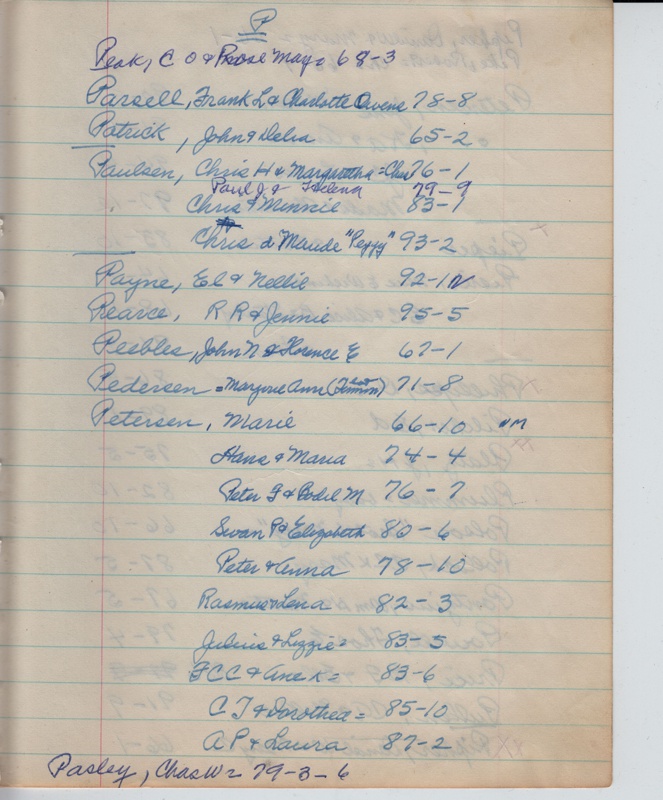 P
Peak, C O & Rose May = 68-3
Parsell, Frank L & Charlotte Owene 78-8
Patrick, John & Delia 65-2
Paulsen, Chris H & Margaretha = Chas 76-1
Paul J & Helena 79-9
Chris & Minnie 83-1
Chris & Maude "Peggy" 93-2
Payne, Ed & Nellie 92-1
Pearce, R R & Jennie 95-5
Peebles, John N & Florence E 67-1
Pedersen = Marjorie Ann 71-8
Petersen, Marie 66-10
Hans & Maria 74-4
Peter G & Bodel M 76-7
Swan P & Elizabeth 80-6
Peter & Anna 78-10
Rasmus & Lena 82-3
Julius & Lizzie = 83-5
F C C & Ane K = 83-6
C J & Dorothea = 85-10
A P & Laura 87-2
Pasley, Chas W = 79-3-6